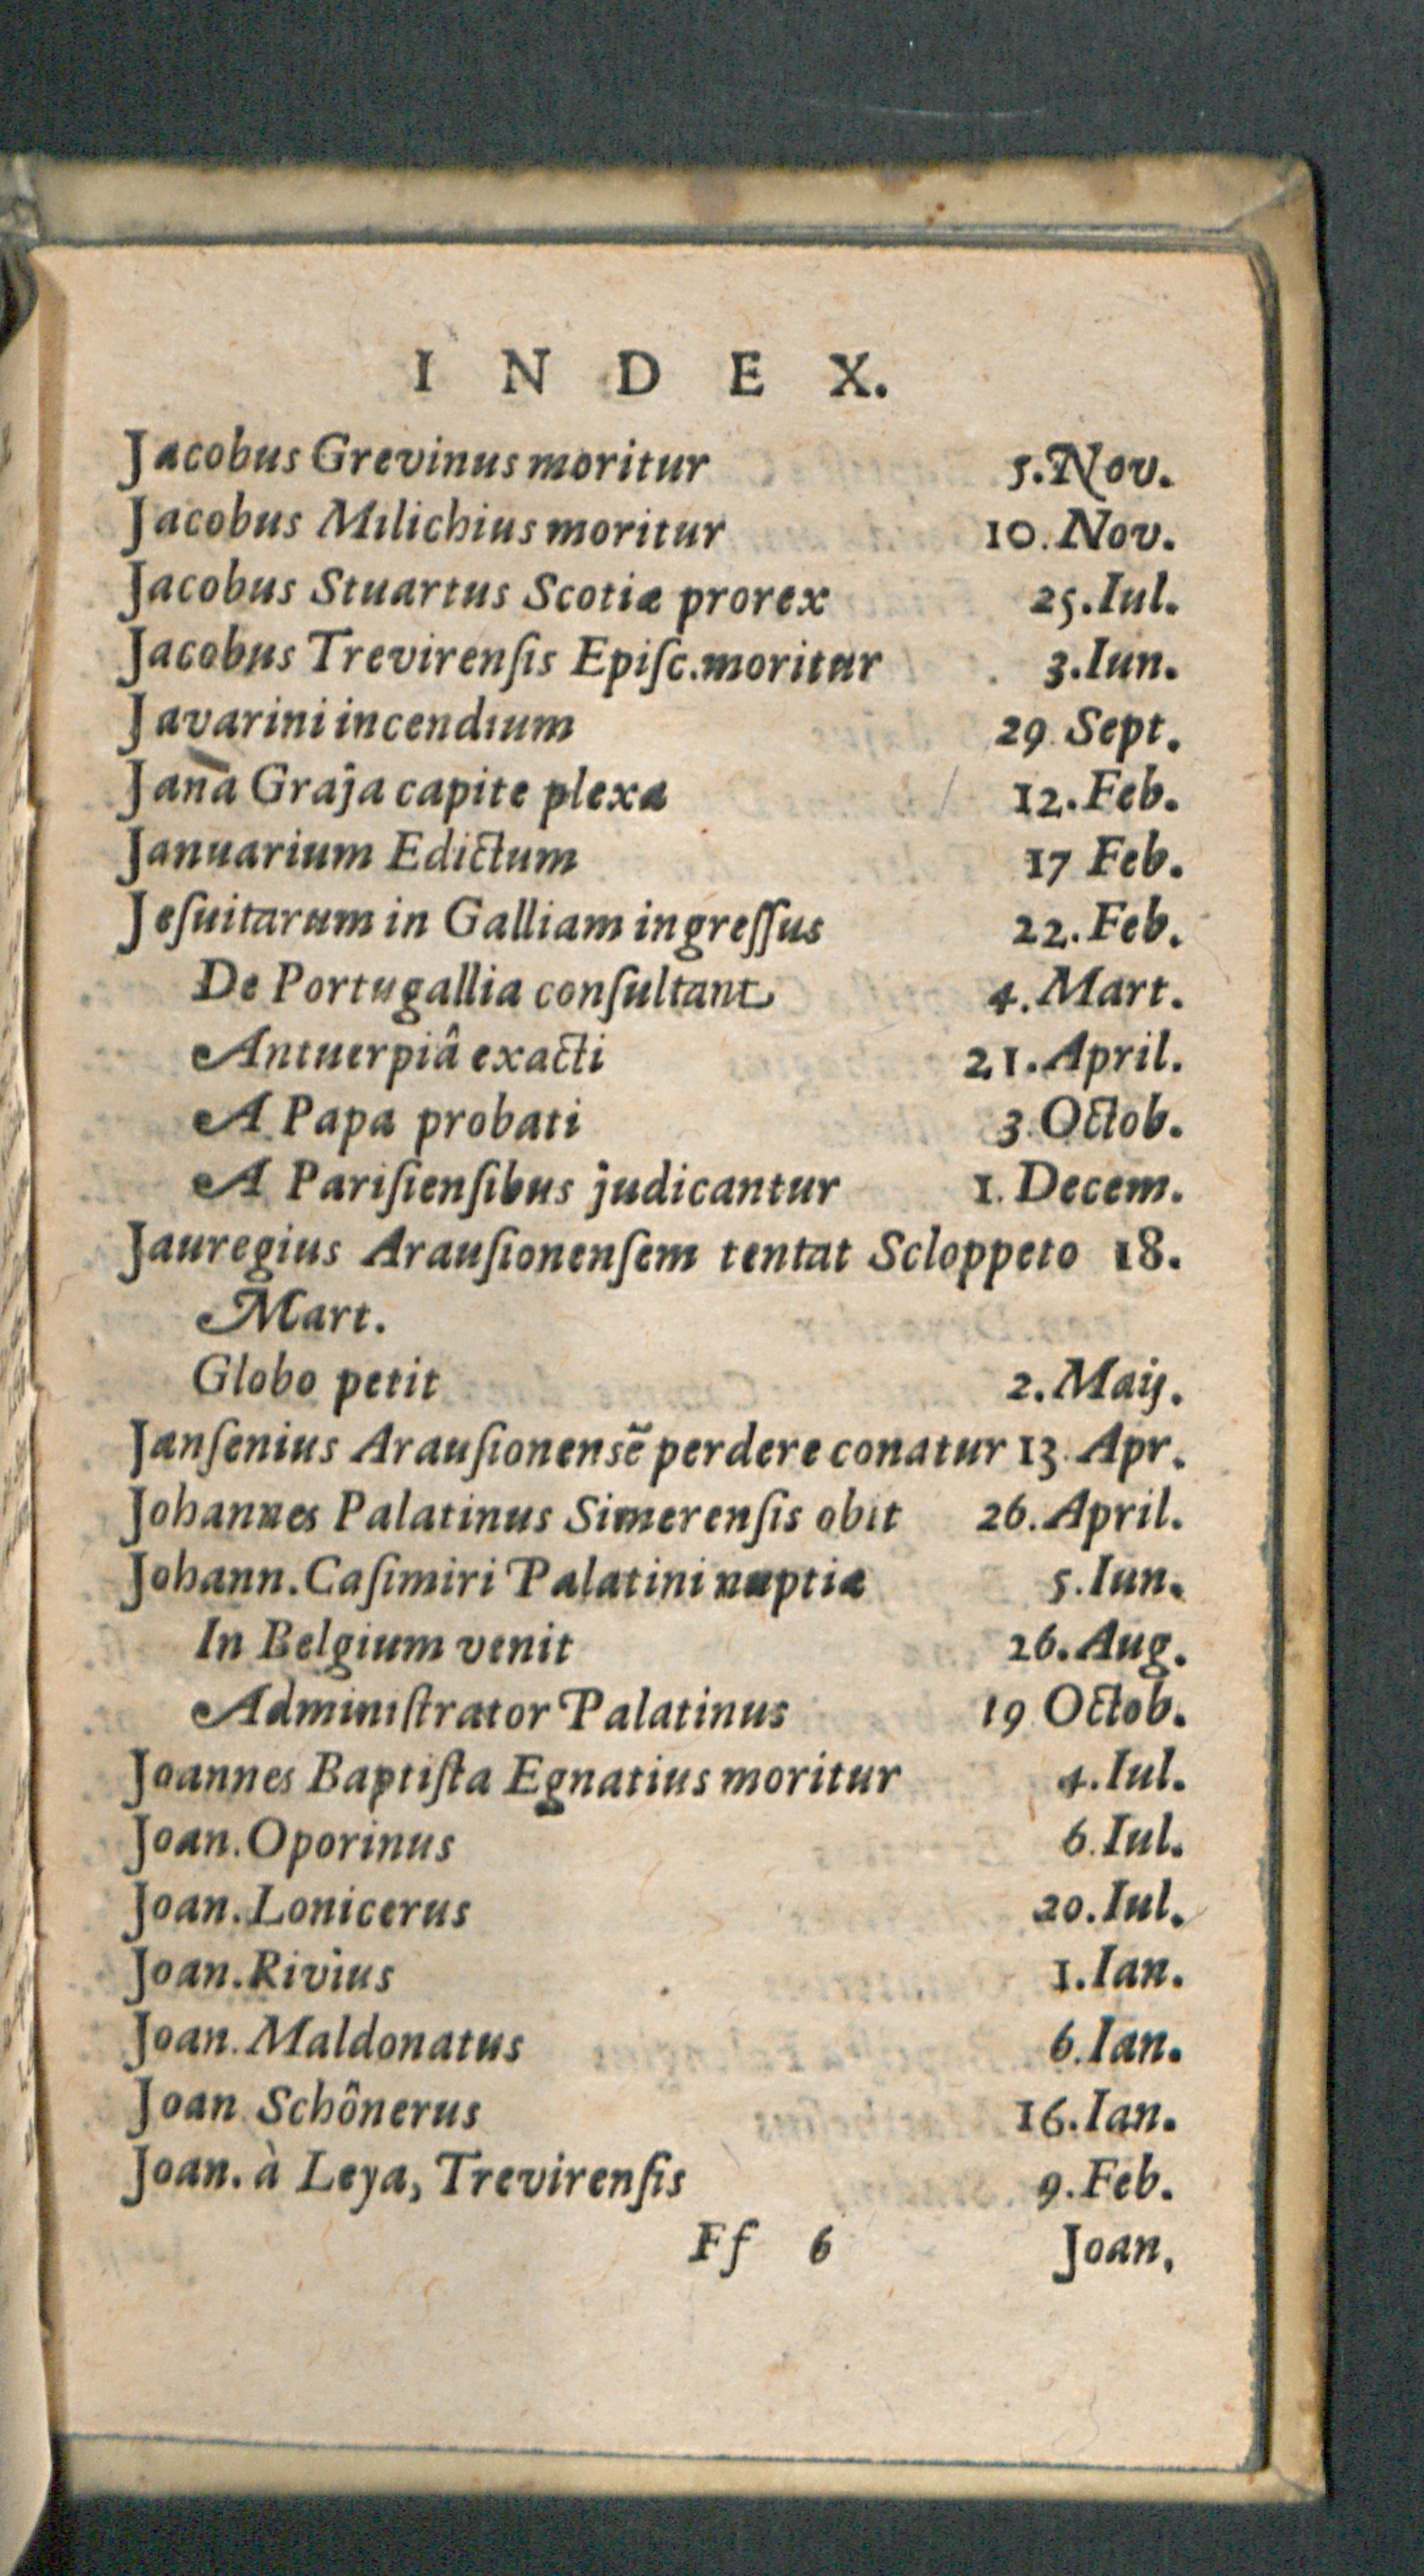 INDEX.
Jacobus Grevinus moritur 5. Nov.
Jacobus Milichius moritur 10. Nov.
Jacobus Stuartus Scotiæ prorex 25. Iul.
Jacobus Trevirenſis Epiſc. moritur 3. Iun.
Javarini incendium 29. Sept.
Jana Graja capite plexa 12. Feb.
Januarium Edictum 17 Feb.
Jeſuitarum in Galliam ingreſſus 22. Feb.
De Portugallia conſultant 4. Mart.
Antuerpiâ exacti 21. April.
A Papa probati 3. Octob.
A Pariſienſibus judicantur 1. Decem.
Jauregius Arauſionenſem tentat Scloppeto 18.
Mart.
Globo petit 2. Maij.
Janſenius Arauſionensẽ perdere conatur 13. Apr.
Johannes Palatinus Simerenſis obit 26. April.
Johann. Caſimiri Palatini nuptiæ 5. Iun.
In Belgium venit 26. Aug.
Adminiſtrator Palatinus 19 Octob.
Joannes Baptiſta Egnatius moritur 4. Iul.
Joan. Oporinus 6. Iul.
Joan. Lonicerus 20. Iul.
Joan. Rivius 1. Ian.
Joan. Maldonatus 6. Ian.
Joan Schônerus 16. Ian.
Joan. à Leya, Trevirenſis 9. Feb.
Ff 6 Joan.